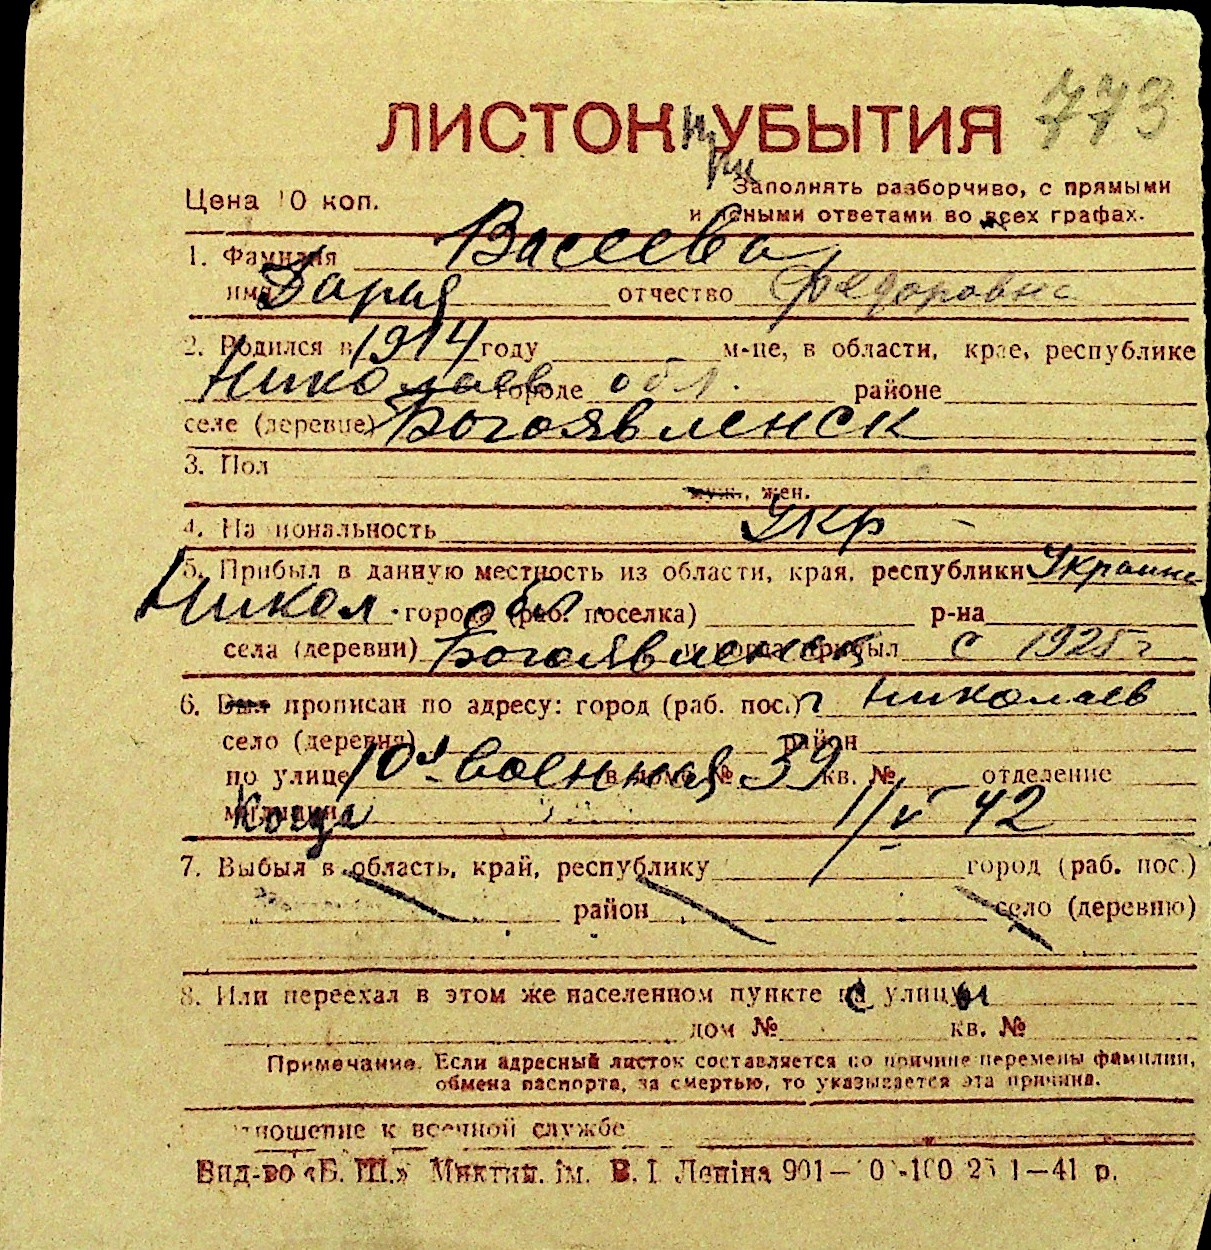 ЛИСТОК УБЫТИЯ 773
Цена 10 коп. Заполнять разборчиво, с прямыми
и ясными ответами во всех графах.
1. Фамилия Васеева
имя Дарья отчество Федоровна
2. Родился в 1914 году м-це, в области, крае, республике
Николаев городе обл. районе
селе (деревне) Богоявленск
3. Пол
муж., жен.
4. Национальность Укр
5. Прибыл в данную местность из области, края, республики Украина
Никол. города обл. (раб. поселка) р-на
села (деревни) Богоявленск и когда прибыл с 1925 г
6. Был прописан по адресу: город (раб. пос.) г Николаев
село (деревня) район
по улице 10я Военная в доме № 39 кв. № отделение
милиции Когда 1/V 42
7. Выбыл в область, край, республику город (раб. пос.)
район село (деревню)
8. Или переехал в этом же населенном пункте с улицы
дом № кв. №
Примечание. Если адресный листок составляется по причине перемены фамилии,
обмена паспорта, за смертью, то указывается эта причина.
отношение к военной службе
Вид-во «Б. Ш.» ім. В. І. Леніна 901— 1—41 р.